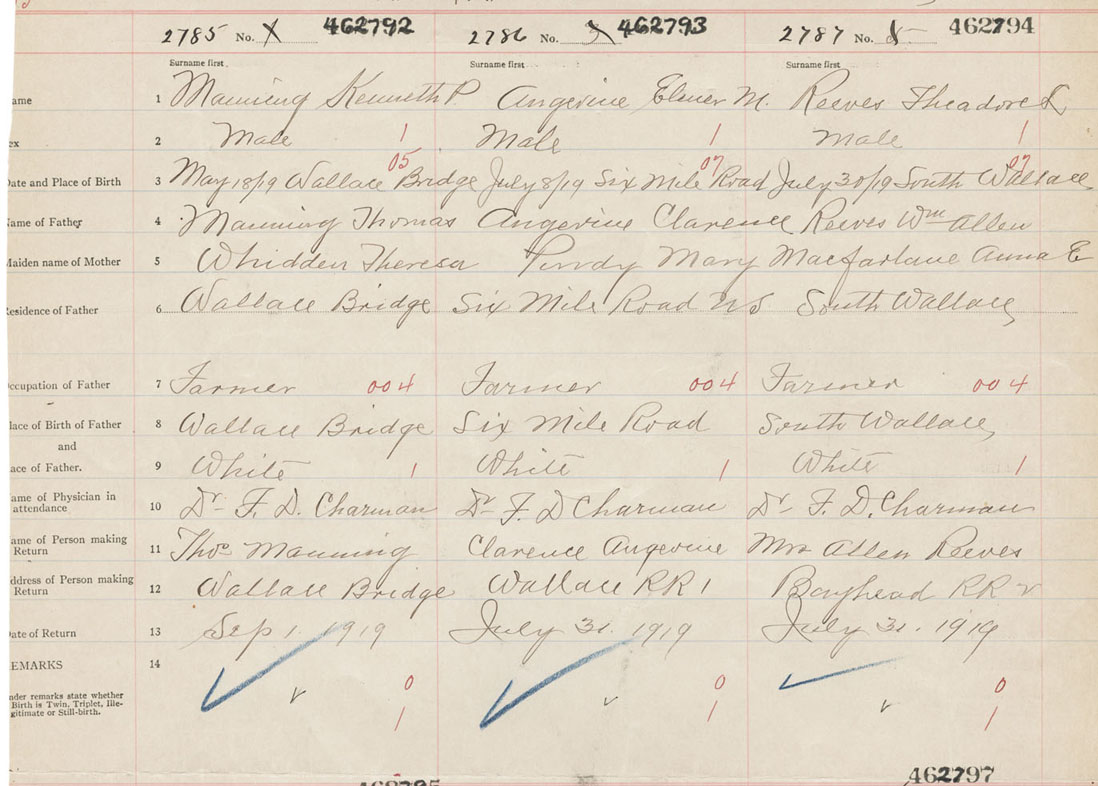 2785 No. X 462792 2786 No. 3 462793 2787 No. 462794
Surname first Surname first Surname first
ame 1 Manning Kenneth P. Angevine Elmer M. Reeves Theadore
ex 2 Male 1 Male 1 Male 1
05 07 07
Date and Place of Birth 3 May 18/19 Wallace Bridge July 8/19 Six Mile Road July 30/19 South Wallace
Name of Father 4 Manning Thomas Angevine Clarence Reeves Wm Allen
Maiden name of Mother 5 Whidden Theresa Purdy Mary Macfarlane Anna E
Residence of Father 6 Wallace Bridge Six Mile Road NS South Wallace
ccupation of Father 7 Farmer 004 Farmer 004 Farmer 004
lace of Birth of Father 8 Wallace Bridge Six Mile Road South Wallace
and
ace of Father. 9 White 1 White 1 White 1
ame of Physician in
attendance 10 Dr F. D. Charman Dr F. D Charman Dr F. D. Charman
ame of Person making
Return 11 Thos Manning Clarence Angevine Mrs Allen Reeves
ddress of Person making
Return 12 Wallace Bridge Wallace RR 1 Bayhead RR 2
ate of Return 13 Sep 1. 1919 July 31. 1919 July 31. 1919
EMARKS 14
nder remarks state whether
Birth is Twin, Triplet, Ille-
gitimate or Still-birth.
0 0 0
1 1 1
462795 462797